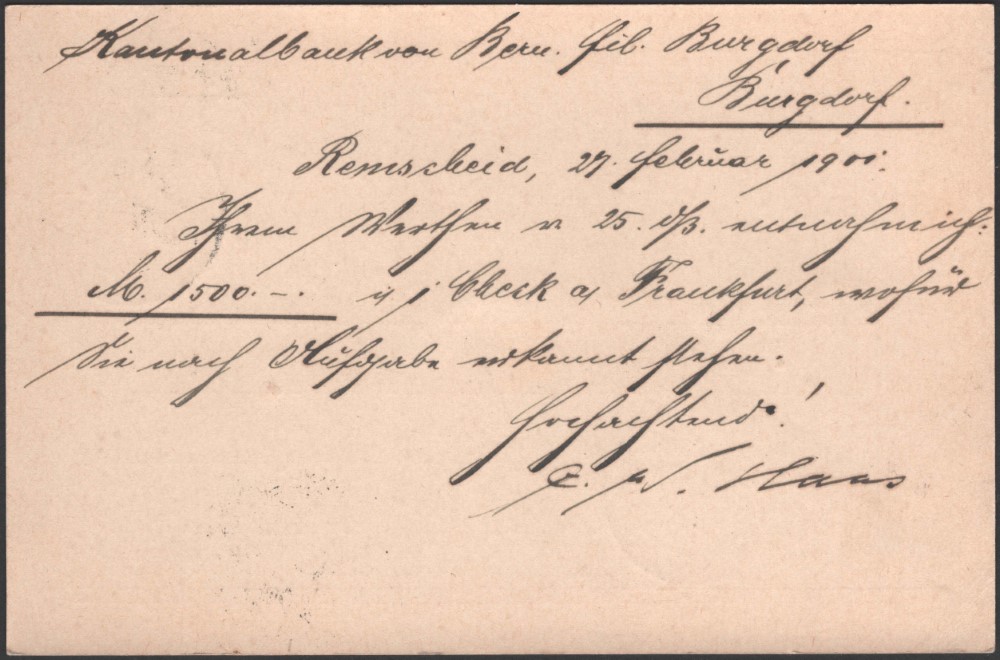 Kantonalbank von Bern. Fil. Burgdorf
Burgdorf.
Remscheid, 27. Februar 1900.
Ihrem Werthen v. 25. ds. entnahm ich:
M. 1500.-. Check a/ Frankfurt, wofür
Sie nach Aufgabe erkannt stehen.
Hochachtend!
Haas